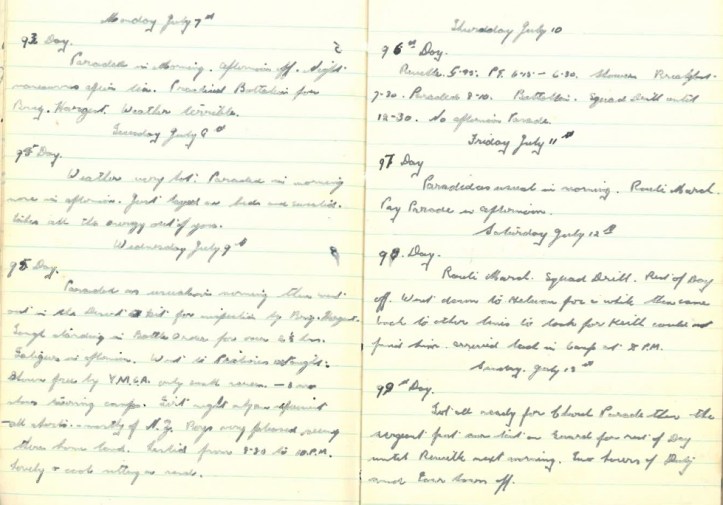 Monday July 7th
93 Day.
Paraded in Morning. Afternoon off. Night
manoeuvres after tea. Practised Battalion for
Brig. Hargest. Weather terrible.
Tuesday July 8th
95 Day.
Weather very hot. Paraded in morning
none in afternoon. Just layed on beds and sweated.
takes all the energy out of you.
Wednesday July 9th
95 Day.
Paraded as usual in morning then went
out in the Desert for inspection by Brig. Hargest.
Tough standing in Battle Order for over hrs.
Fatigues in afternoon. Went to Pictures tonight.
Shown free by Y.M.C.A. only each
camps. First night
all shorts mostly of N.Z. Boys very pleased seeing
there home land. Lasted from 8-30 to 10 P.M.
Lovely & cool sitting on sand.
Thursday July 10
96th Day.
Reveille 5-45. P.T. 6-15 - 6.30. Showers Breakfast
7-30. Paraded 8-10. Battalion. Squad Drill until
12-30. No afternoon Parade.
Friday July 11th
97 Day
Paraded as usual in morning. Route March.
Pay Parade in afternoon.
Saturday July 12th
98. Day.
Route March. Squad Drill. Rest of Day
off. Went down to Helwan for a while then came
back to other lines to look for Keith could not
find him. arrived back in Camp at P.M.
Sunday. July 13th
99th Day.
Got all ready for Church Parade then the
sergeant put our tent on Guard for rest of Day
until Reveille next morning. Two hours of Duty
and Four hours off.